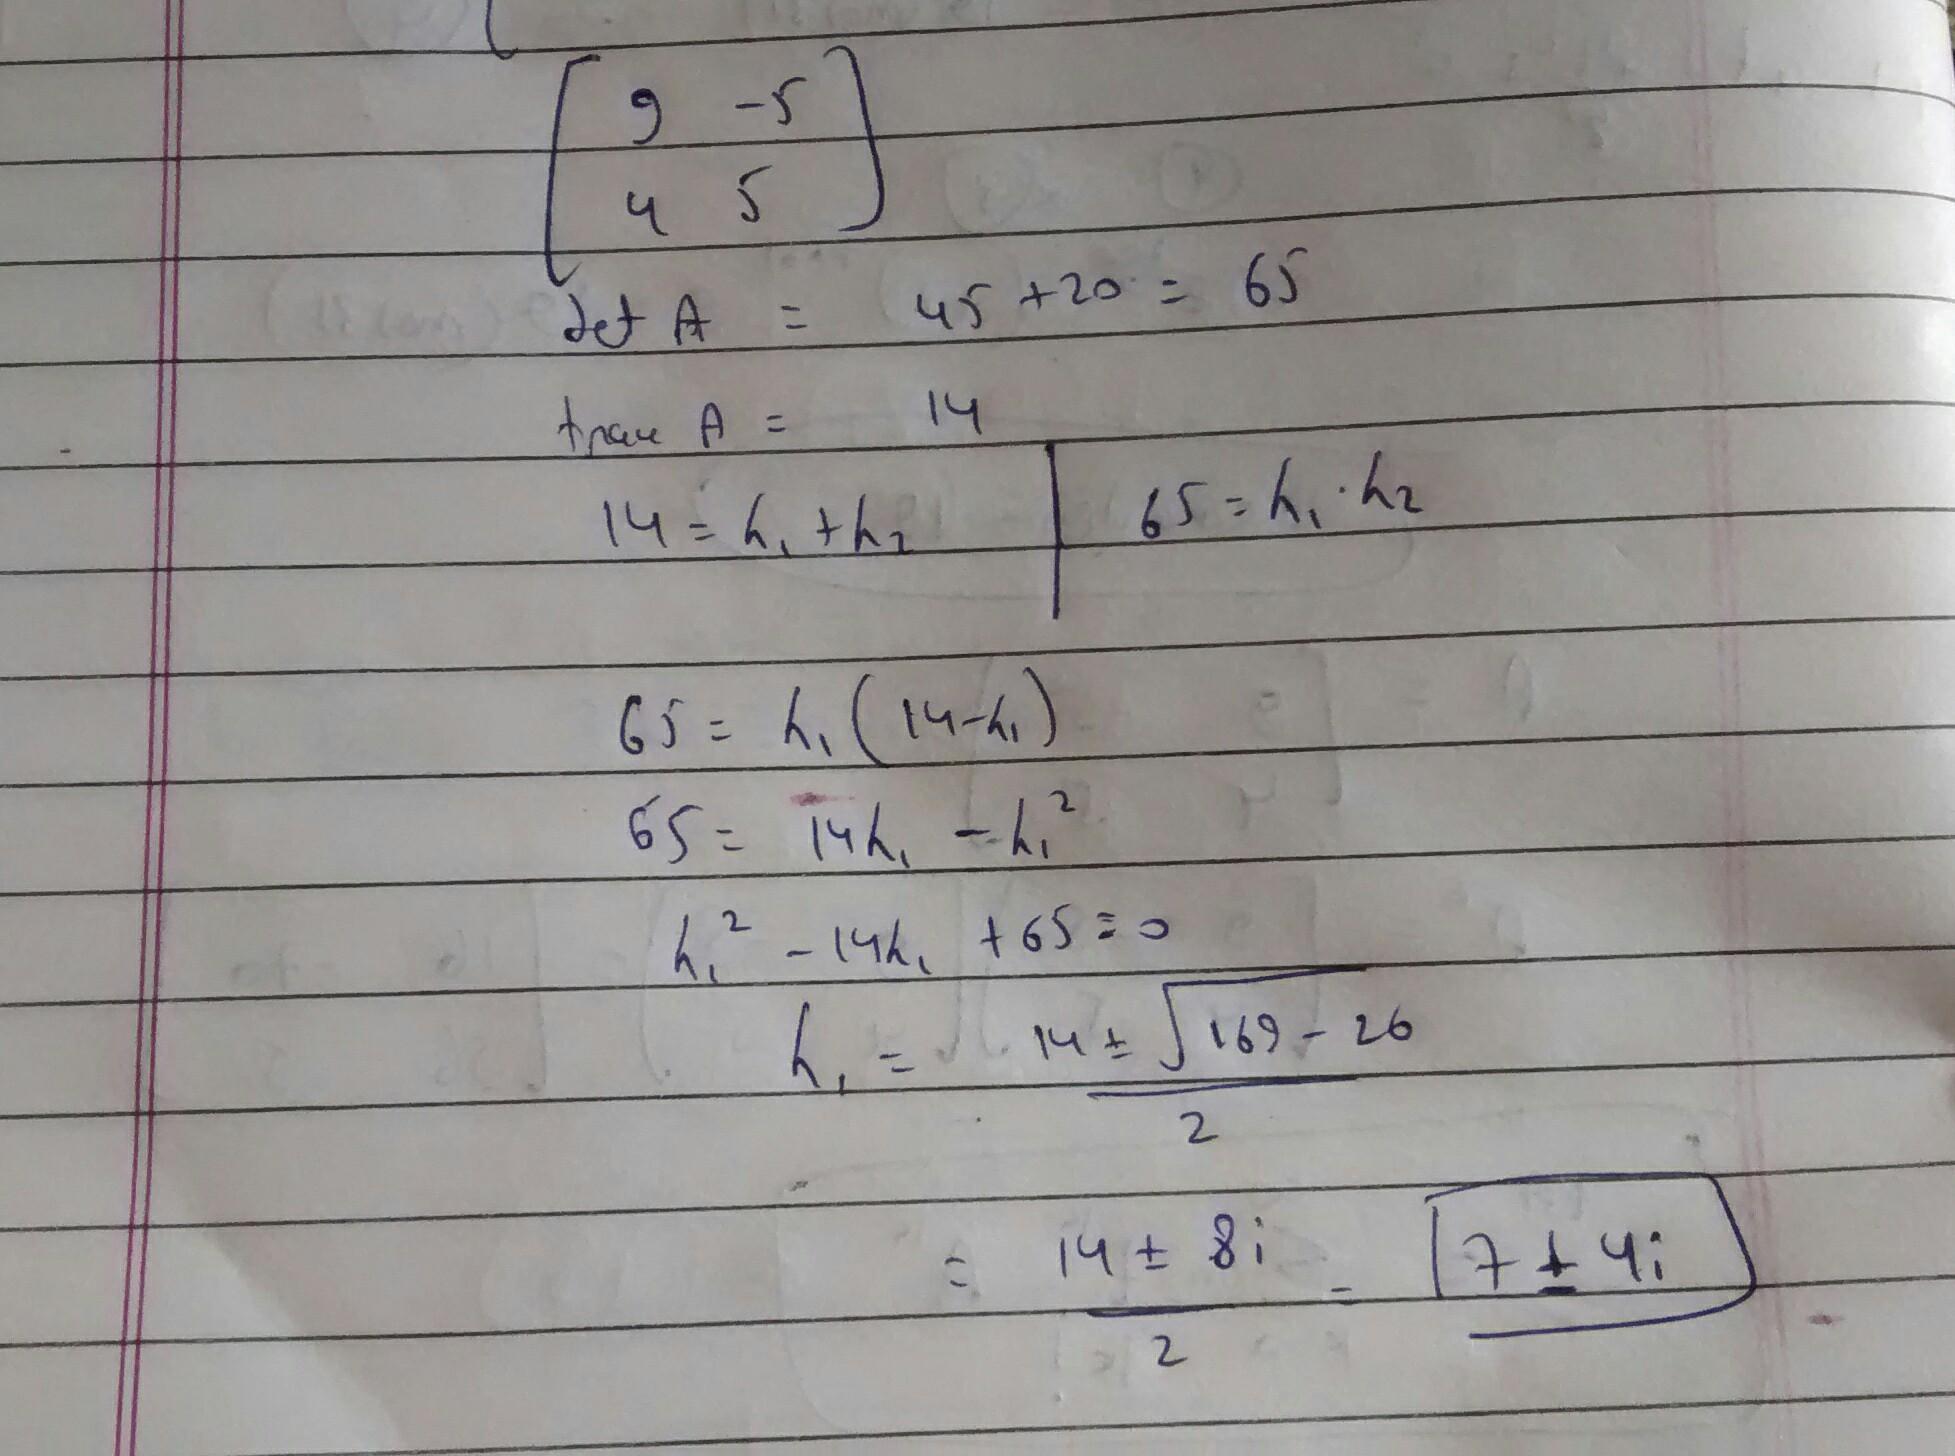 9 -5
4 5
det A = 45 + 20 = 65
trace A = 14
14 = λ₁ + λ₂ | 65 = λ₁ · λ₂
65 = λ₁ (14 - λ₁)
65 = 14λ₁ - λ₁²
λ₁² - 14λ₁ + 65 = 0
λ₁ = 14 ± √169 - 26
2
= 14 ± 8i = 7 ± 4i
2